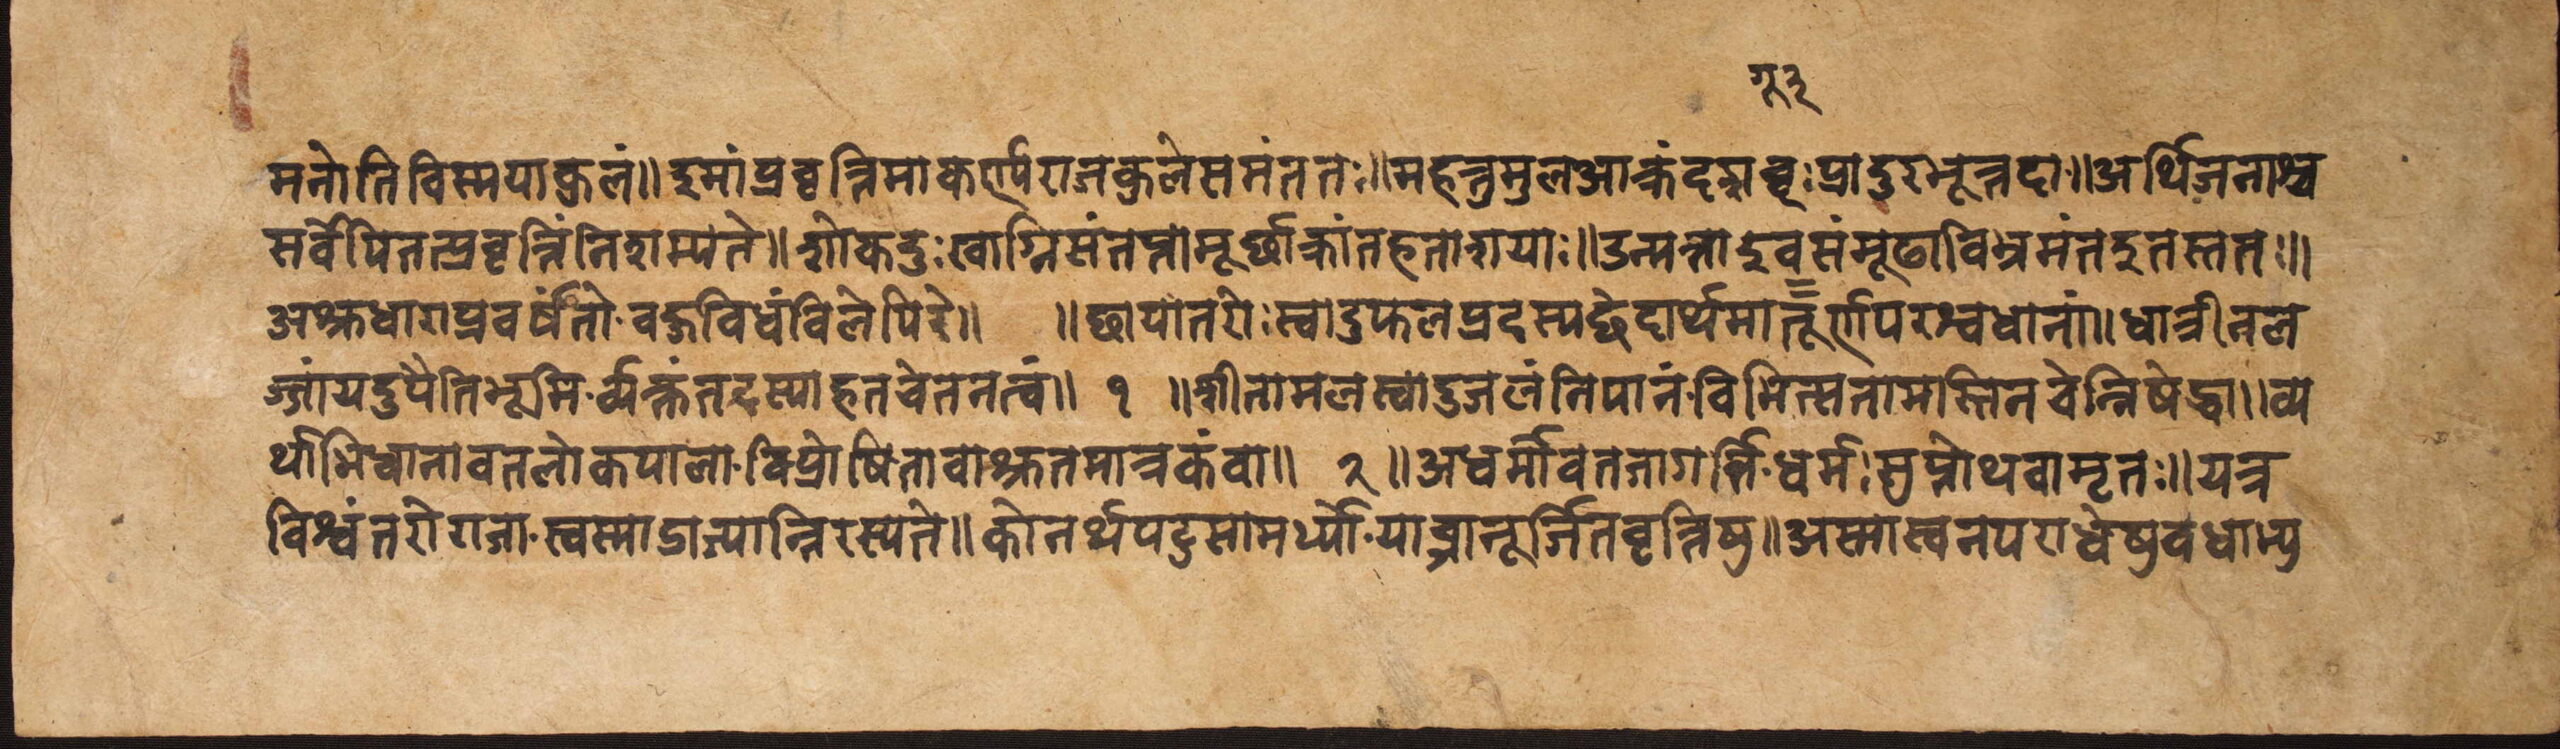 गू३
मनोतिविस्मयाकुलं॥इमांप्रवृत्तिमाकर्ण्यराजकुलेसमंततः॥महन्तुमुलआक्रंदशब्दःप्रादुरभूत्तदा॥अर्थिजनाश्च
सर्वेपितत्प्रवृत्तिंनिशम्यते॥शोकदुःखाग्निसंतप्तामूर्छाक्रांतहताशयाः॥उन्मत्ताइवसंमूढाविभ्रमंतइतस्ततः॥
अश्रुधाराप्रवर्षंतो॰वहुविधंविलेपिरे॥ ॥छायातरोःस्वादुफलप्रदस्यच्छेदार्थमातूर्णपरश्वधानां॥धात्रीनल
ज्जांयदुपैतिभूमि॰र्व्यक्तंतदस्याहतचेतनत्वं॥ १ ॥शीतामलस्वादुजलंनिपानं॰विभित्सतामस्तिनचेन्निषेद्धा॥व्य
र्थाभिधानावतलोकपाला॰विप्रोषितावाश्रुतमात्रकंवा॥ २ ॥अधर्मोवतजागर्त्ति॰धर्मःसुप्तोथवामृतः॥यत्र
विश्वंतरोराजा॰स्वस्माद्राज्यान्निरस्यते॥कोनर्थपटुसामर्थ्यो॰याच्ञानूर्जितवृत्तिषु॥अस्मास्वनपराधेषुवधाभ्यु